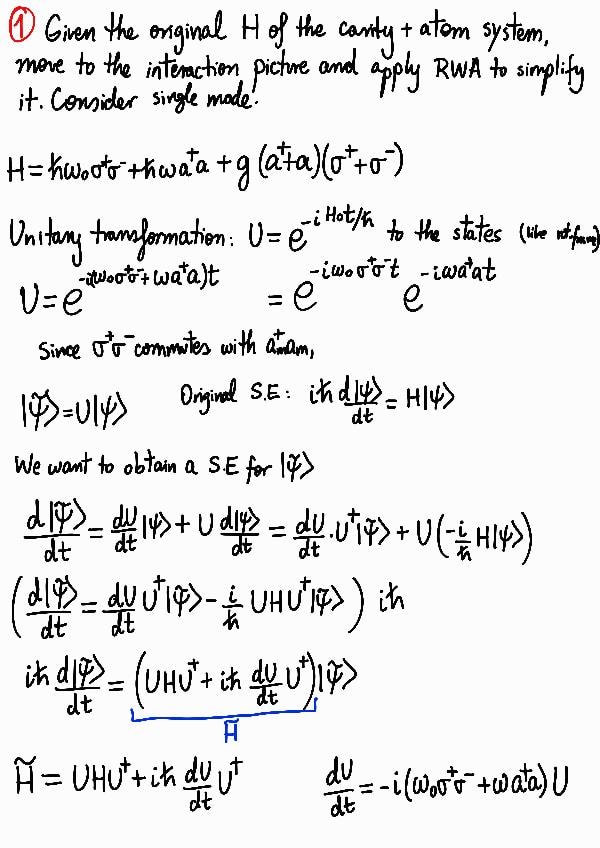 ① Given the original H of the cavity + atom system,
move to the interaction picture and apply RWA to simplify
it. Consider single mode.
H = ħω₀σ⁺σ⁻ + ħωa⁺a + g(a⁺+a)(σ⁺+σ⁻)
Unitary transformation: U = e^{-iH₀t/ħ} to the states (like rot. frame)
U = e^{-i(ω₀σ⁺σ⁻ + ωa⁺a)t} = e^{-iω₀σ⁺σ⁻t} e^{-iωa⁺at}
Since σ⁺σ⁻ commutes with a⁺ₘaₘ,
|ψ̃⟩ = U|ψ⟩ Original S.E: iħ d|ψ⟩/dt = H|ψ⟩
We want to obtain a S.E for |ψ̃⟩
d|ψ̃⟩/dt = dU/dt |ψ⟩ + U d|ψ⟩/dt = dU/dt · U⁺|ψ̃⟩ + U(-i/ħ H|ψ⟩)
(d|ψ̃⟩/dt = dU/dt U⁺|ψ̃⟩ - i/ħ UHU⁺|ψ̃⟩) iħ
iħ d|ψ̃⟩/dt = (UHU⁺ + iħ dU/dt U⁺)|ψ̃⟩
H̃
H̃ = UHU⁺ + iħ dU/dt U⁺ dU/dt = -i(ω₀σ⁺σ⁻ + ωa⁺a)U